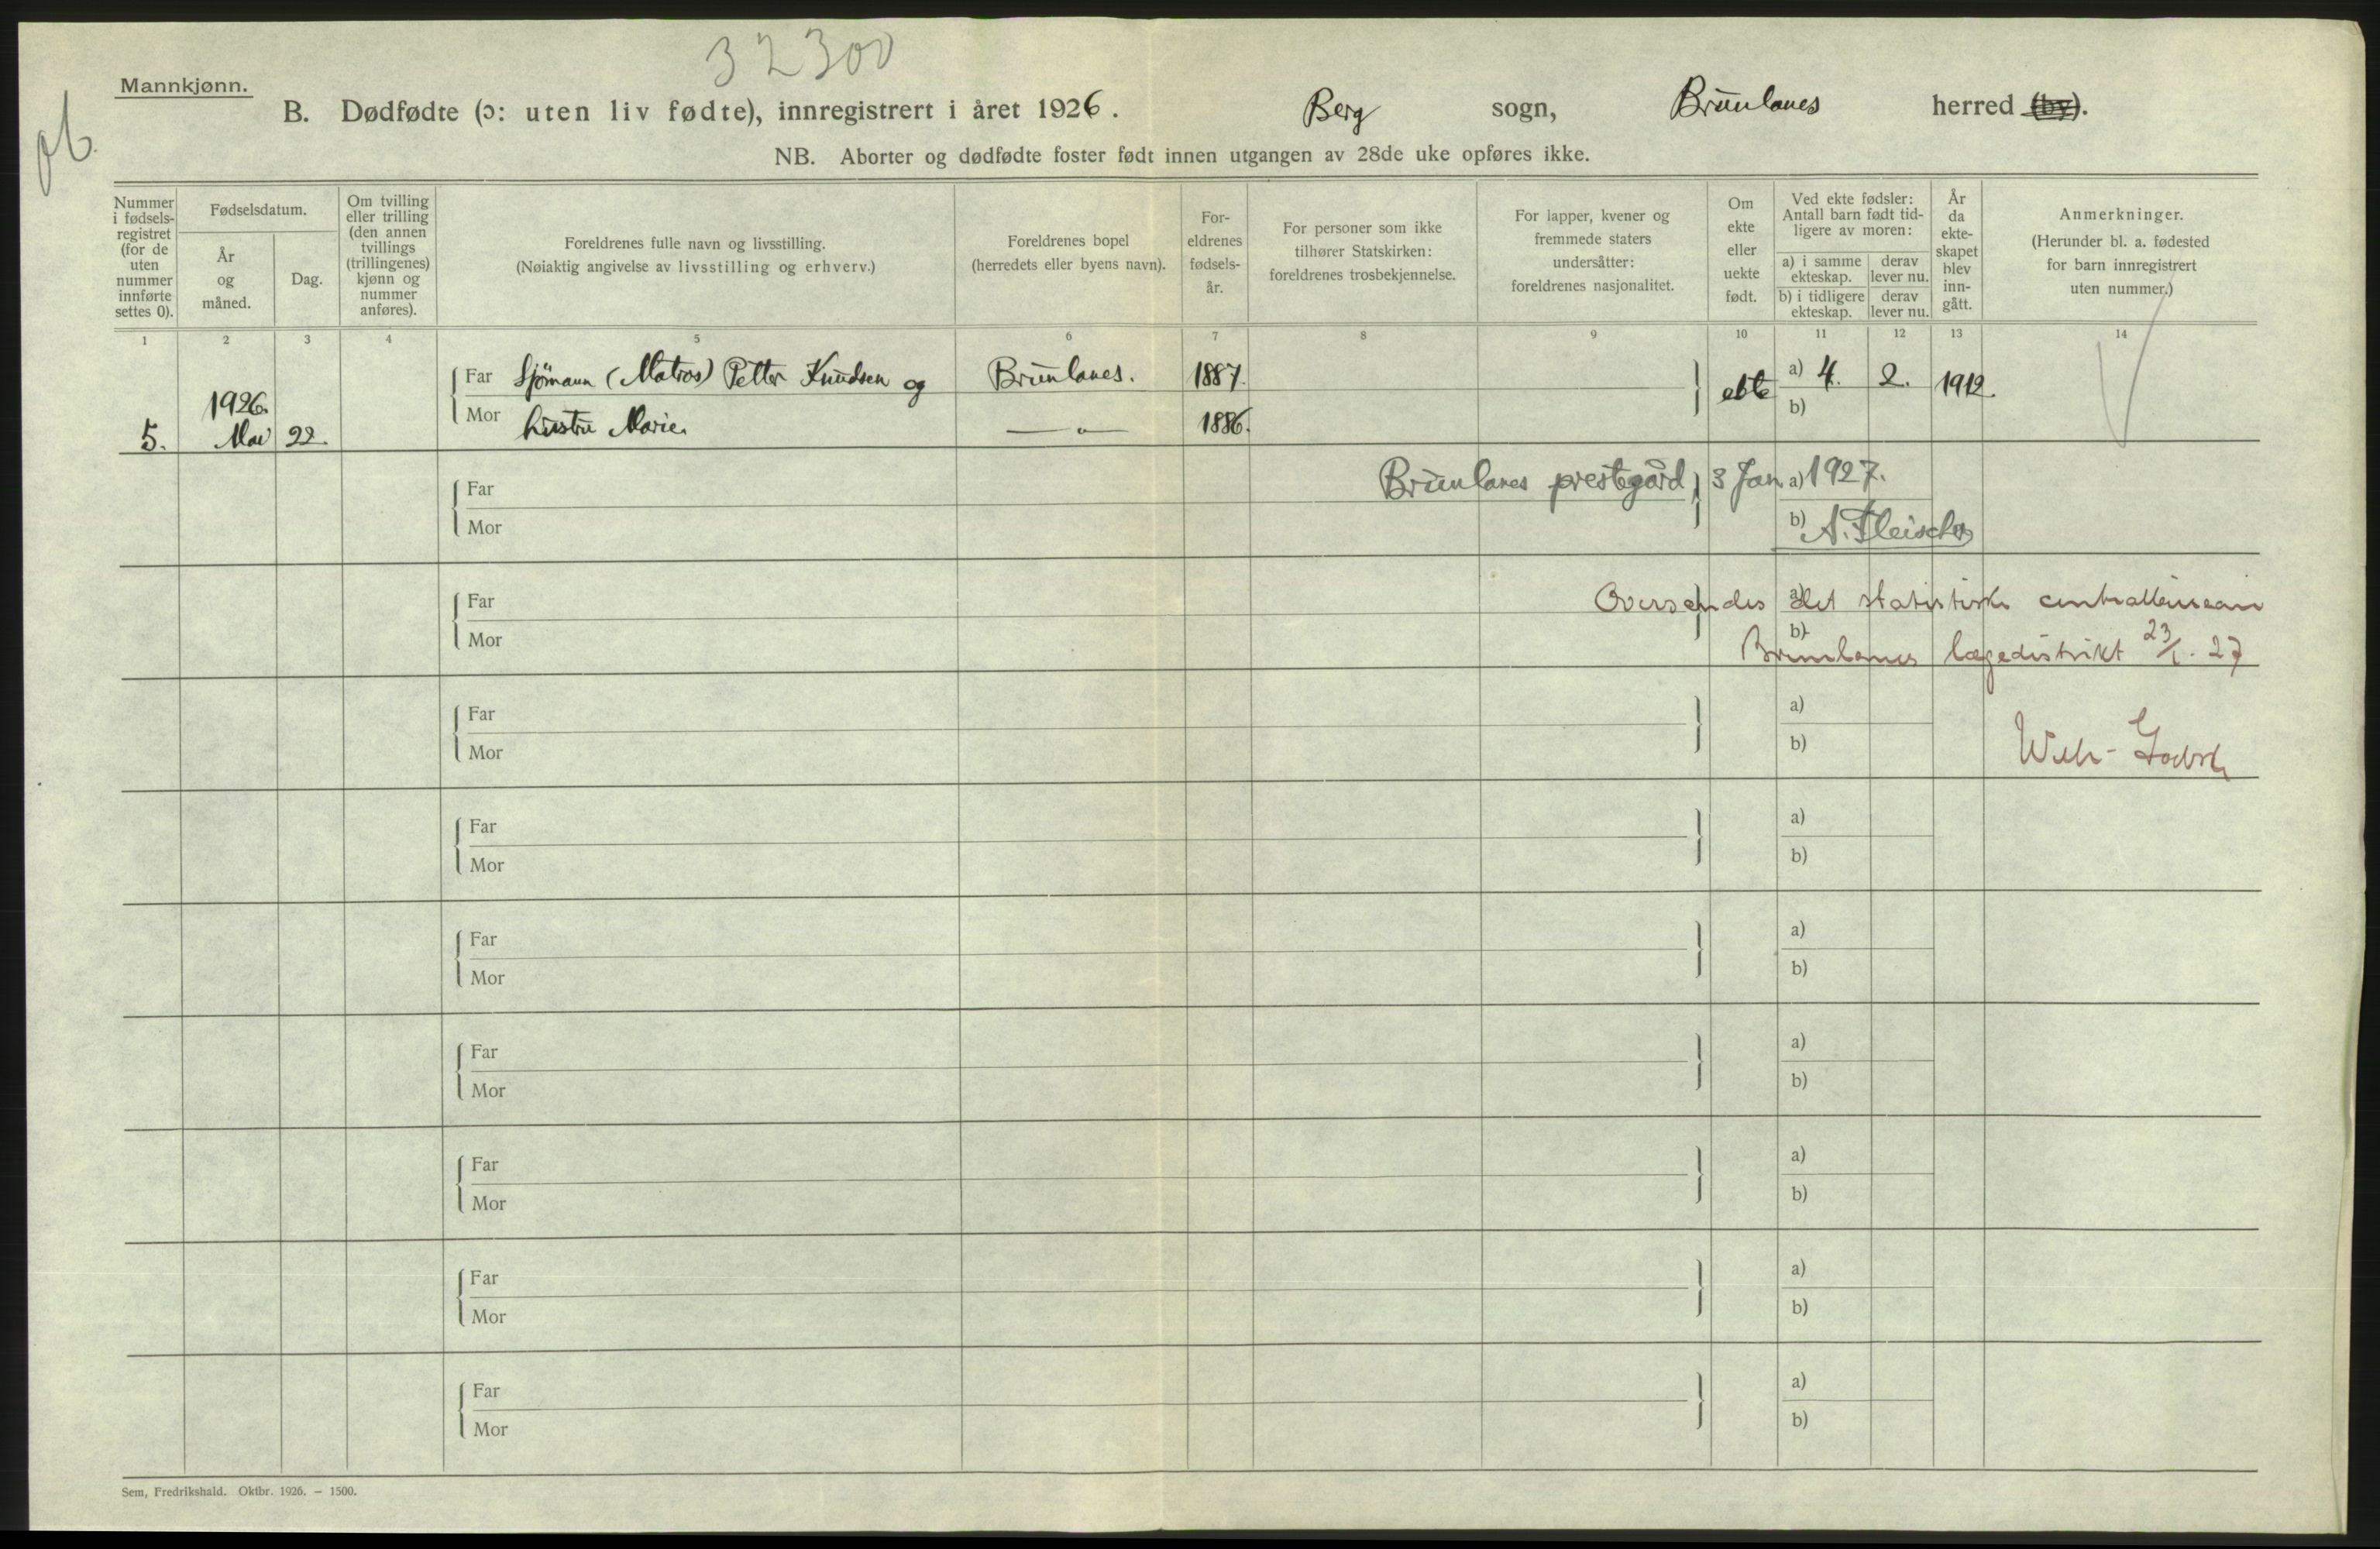 32300
Mannkjønn.
ob.
B. Dødfødte (ɔ: uten liv fødte), innregistrert i året 1926. Berg sogn, Brunlanes herred (by).
NB. Aborter og dødfødte foster født innen utgangen av 28de uke opføres ikke.
Nummer i fødsels-registret (for de uten nummer innførte settes 0).
Fødselsdatum.
År og måned.
Dag.
Om tvilling eller trilling (den annen tvillings (trillingenes) kjønn og nummer anføres).
Foreldrenes fulle navn og livsstilling.
(Nøiaktig angivelse av livsstilling og erhverv.)
Foreldrenes bopel
(herredets eller byens navn).
For-eldrenes fødsels-år.
For personer som ikke tilhører Statskirken: foreldrenes trosbekjennelse.
For lapper, kvener og fremmede staters undersåtter: foreldrenes nasjonalitet.
Om ekte eller uekte født.
Ved ekte fødsler: Antall barn født tid-ligere av moren:
a) i samme ekteskap.
derav lever nu.
b) i tidligere ekteskap.
derav lever nu.
År da ekte-skapet blev inn-gått.
Anmerkninger.
(Herunder bl. a. fødested for barn innregistrert uten nummer.)
1 2 3 4 5 6 7 8 9 10 11 12 13 14
Far Sjömann (Matros) Petter Knudsen og Brunlanes. 1887. ekte a) 4. 2. 1912.
5. 1926. Mai 22. Mor hustru Marie. — " — 1886. b)
Far Brunlanes prestegård 3 Jan. a) 1927.
Mor b) A. Fleischer
Far Oversendes a) det statistiske centralbureau
Mor b) Brunlanes lægedistrikt 23/1. 27
Far a)
Mor b)
Far a)
Mor b)
Far a)
Mor b)
Far a)
Mor b)
Far a)
Mor b)
Far a)
Mor b)
Far a)
Mor b)
Sem, Fredrikshald. Oktbr. 1926. — 1500.